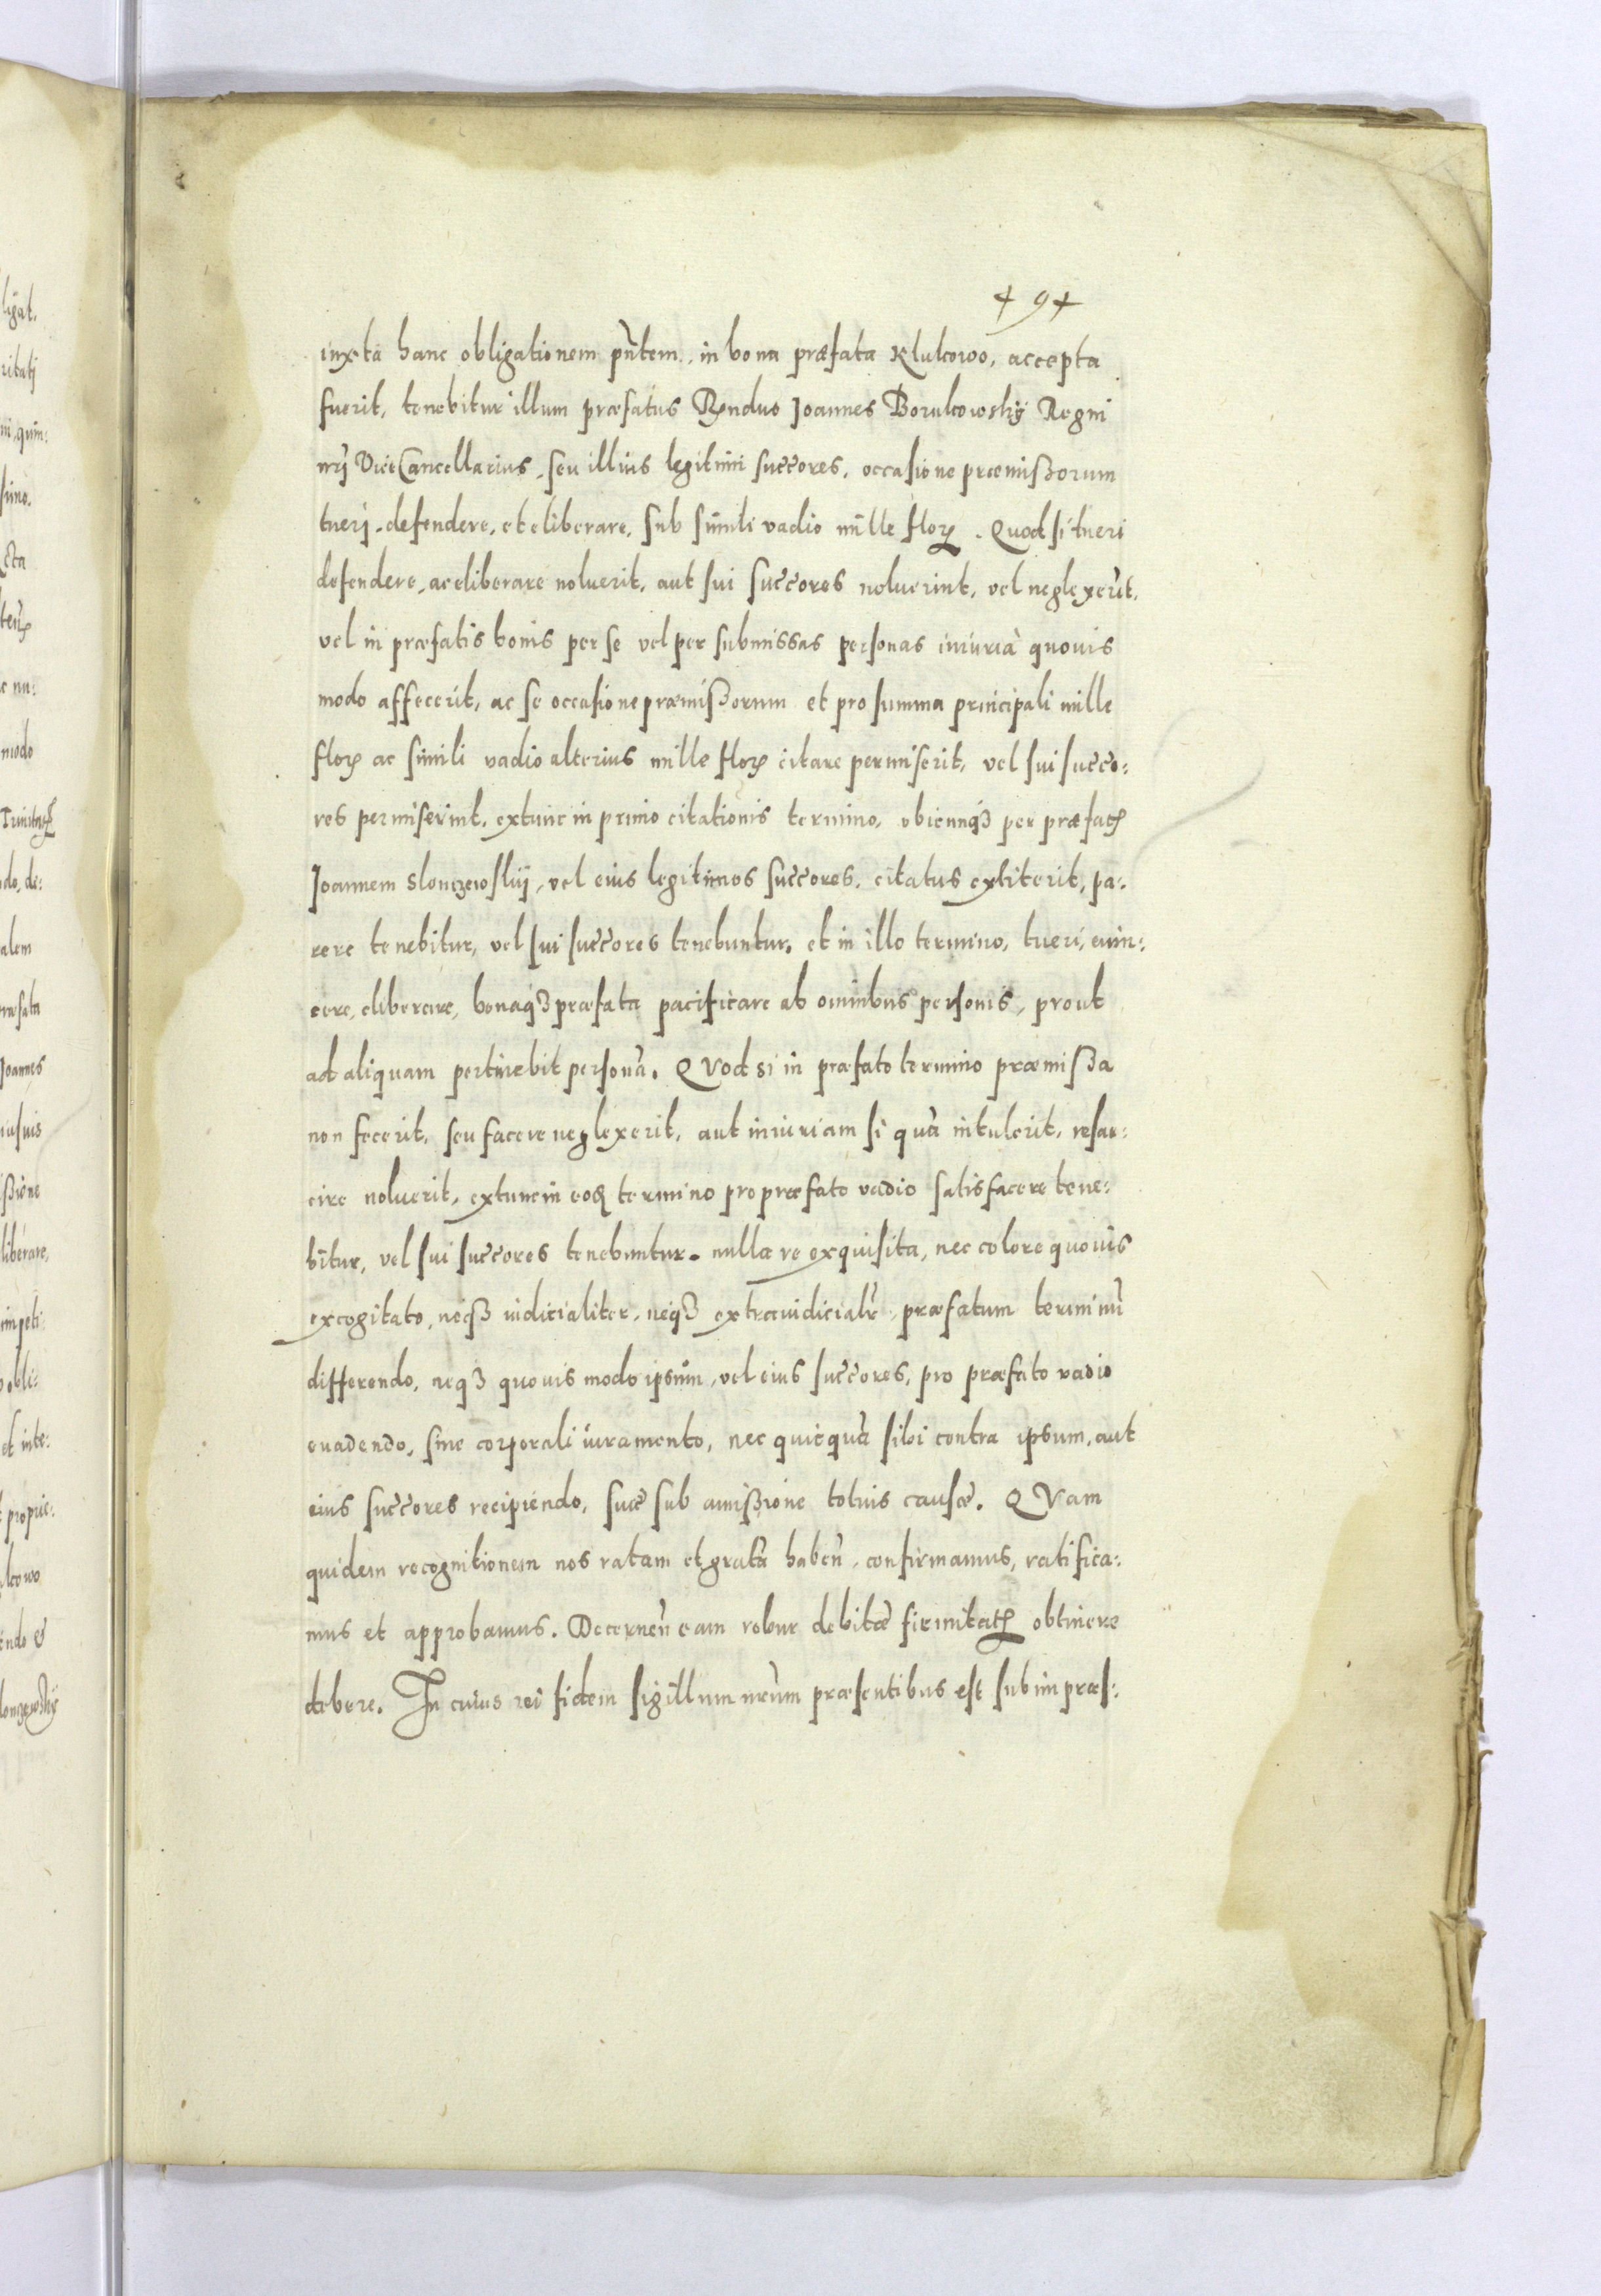 + 9 +
iuxta hanc obligationem pn̄tem, in bona præfata Klukowo, accepta
fuerit, tenebitur illum præfatus Rendus Joannes Borukowskij Regni
nr̄j Vice Cancellarius, seu illius legitimi succ̄ores, occasione præmißorum
tuerj, defendere, et eliberare, sub simili vadio mille floꝝ. Quod si tueri
defendere, ac eliberare noluerit, aut sui succ̄ores noluerint, vel neglexer̄it,
vel in præfatis bonis per se vel per submissas personas iniuriā quouis
modo affecerit, ac se occasione præmißorum et pro summa principali mille
floꝝ ac simili vadio alterius mille floꝝ citare permiserit, vel sui succ̄o:
res permiserint, extunc in primo citationis termino, vbicunqȝ per præfatꝭ
Joannem Slonczewskij, vel eius legitimos succ̄ores, citatus extiterit, pa:
rere tenebitur, vel sui succ̄ores tenebuntur, et in illo termino, tueri, euin:
cere, eliberare, bonaqȝ præfata pacificare ab omnibus personis, prout
ad aliquam pertinebit personā. QVod si in præfato termino præmißa
non fecerit, seu facere neglexerit, aut iniuriam si quā intulerit, resar:
cire noluerit, extunc in eoꝗ termino pro præfato vadio satisfacere tene:
bitur, vel sui succ̄ores tenebuntur. nulla re exquisita, nec colore quouis
excogitato, neqȝ iudicialiter, neqȝ extraiudicialr̄ præfatum terminū
differendo, neqȝ quouis modo ipsum, vel eius succ̄ores, pro præfato vadio
euadendo, sine corporali iuramento, nec quicquā sibi contra ipsum, aut
eius succ̄ores recipiendo, suæ sub amißione totius causæ. QVam
quidem recognitionem nos ratam et gratā haben̄, confirmamus, ratifica:
mus et approbamus. Decernen̄ eam robur debitæ firmitatꝭ obtinere
debere. In cuius rei fidem sigillum nr̄um præsentibus est subimpræs: